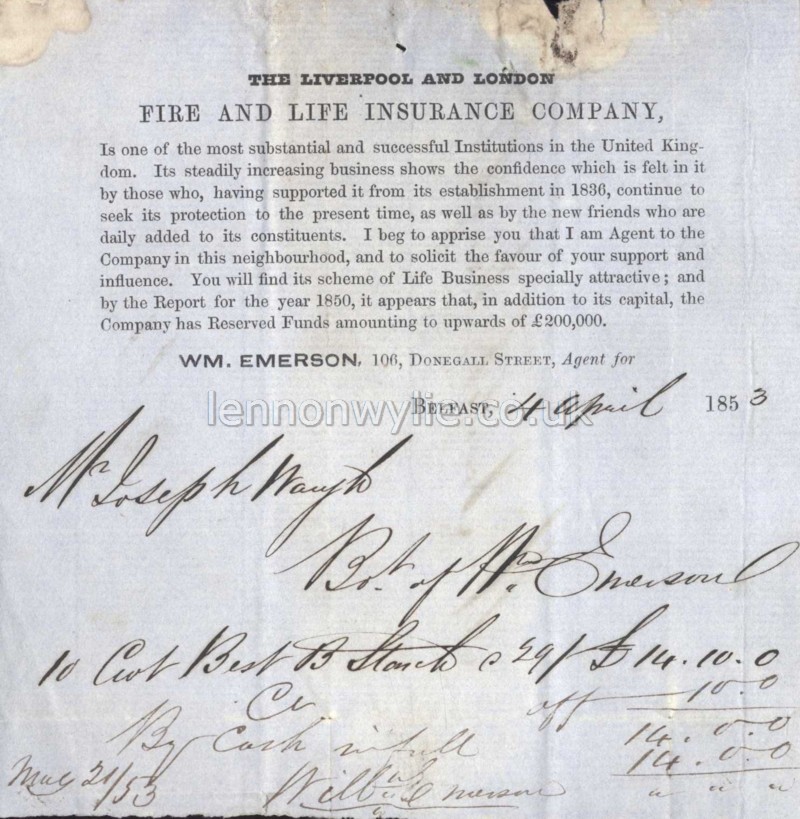 THE LIVERPOOL AND LONDON
FIRE AND LIFE INSURANCE COMPANY,
Is one of the most substantial and successful Institutions in the United King-
dom. Its steadily increasing business shows the confidence which is felt in it
by those who, having supported it from its establishment in 1836, continue to
seek its protection to the present time, as well as by the new friends who are
daily added to its constituents. I beg to apprise you that I am Agent to the
Company in this neighbourhood, and to solicit the favour of your support and
influence. You will find its scheme of Life Business specially attractive; and
by the Report for the year 1850, it appears that, in addition to its capital, the
Company has Reserved Funds amounting to upwards of £200,000.
WM. EMERSON, 106, DONEGALL STREET, Agent for
BELFAST, 4 April 1853
lennonwylie.co.uk
Mr Joseph Waugh
Bot. of Wm Emerson
10 Cwt Best B Starch @ 29/ £ 14.10.0
off 10.0
Cr 14.0.0
By Cash in full 14.0.0
May 21/53 Emerson